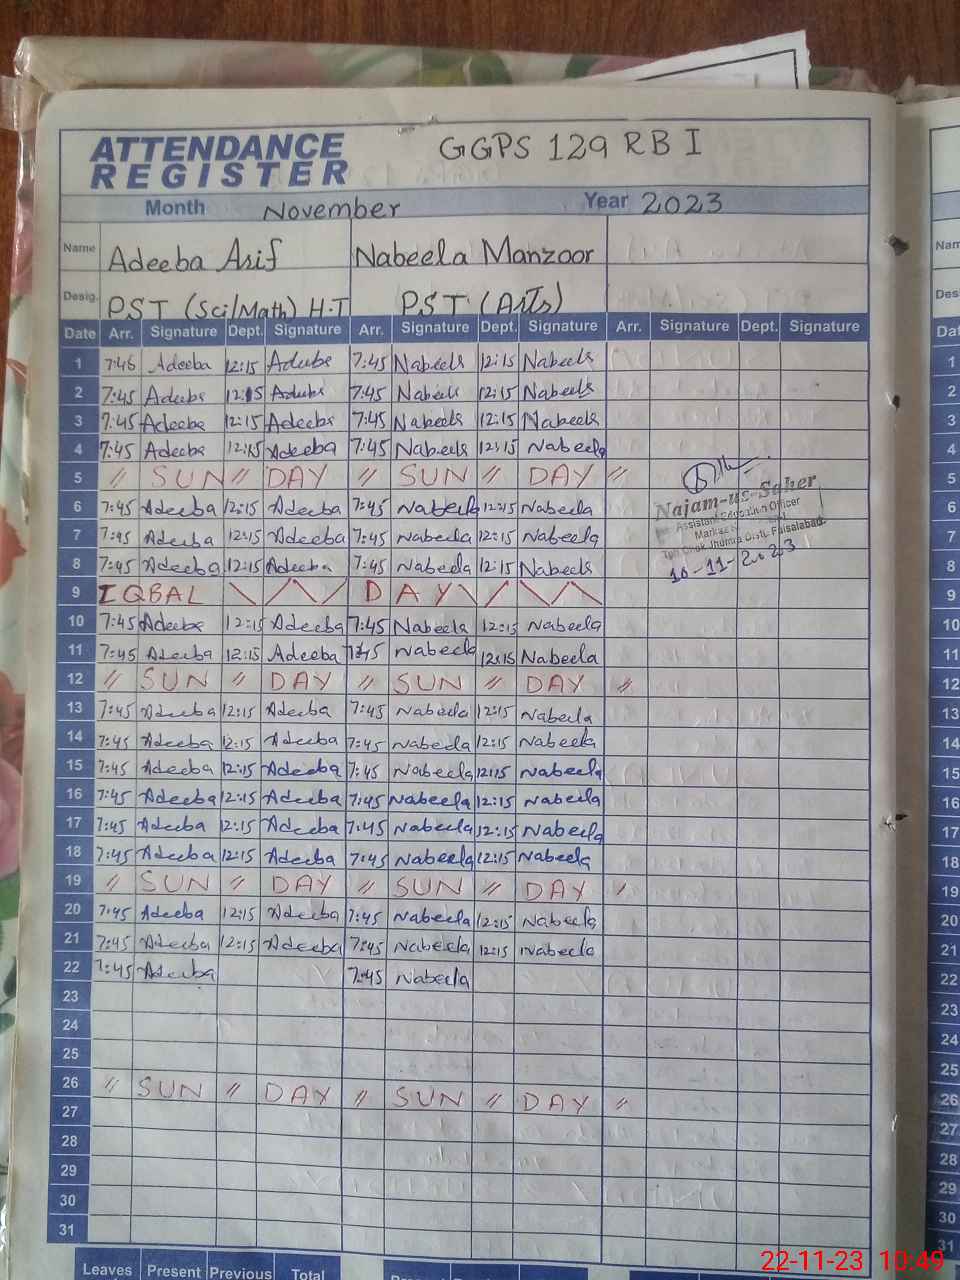 ATTENDANCE REGISTER GGPS 129 RB I
Month November Year 2023
Name Adeeba Asif Nabeela Manzoor
Desig. PST (Sci/Math) H.T PST (Arts)
Date Arr. Signature Dept. Signature Arr. Signature Dept. Signature Arr. Signature Dept. Signature
1 7:46 Adeeba 12:15 Adeeba 7:45 Nabeela 12:15 Nabeela
2 7:45 Adeeba 12:15 Adeeba 7:45 Nabeela 12:15 Nabeela
3 7:45 Adeeba 12:15 Adeeba 7:45 Nabeela 12:15 Nabeela
4 7:45 Adeeba 12:15 Adeeba 7:45 Nabeela 12:15 Nabeela
5 // SUN // DAY // SUN // DAY //
6 7:45 Adeeba 12:15 Adeeba 7:45 Nabeela 12:15 Nabeela
Najam-us-Saher
Assistant Education Officer
7 7:45 Adeeba 12:15 Adeeba 7:45 Nabeela 12:15 Nabeela
Markaz
Teh Chak Jhumra Distt. Faisalabad.
8 7:45 Adeeba 12:15 Adeeba 7:45 Nabeela 12:15 Nabeela
10-11-2023
9 IQBAL DAY
10 7:45 Adeeba 12:15 Adeeba 7:45 Nabeela 12:15 Nabeela
11 7:45 Adeeba 12:15 Adeeba 7:45 Nabeela 12:15 Nabeela
12 // SUN // DAY // SUN // DAY //
13 7:45 Adeeba 12:15 Adeeba 7:45 Nabeela 12:15 Nabeela
14 7:45 Adeeba 12:15 Adeeba 7:45 Nabeela 12:15 Nabeela
15 7:45 Adeeba 12:15 Adeeba 7:45 Nabeela 12:15 Nabeela
16 7:45 Adeeba 12:15 Adeeba 7:45 Nabeela 12:15 Nabeela
17 7:45 Adeeba 12:15 Adeeba 7:45 Nabeela 12:15 Nabeela
18 7:45 Adeeba 12:15 Adeeba 7:45 Nabeela 12:15 Nabeela
19 // SUN // DAY // SUN // DAY //
20 7:45 Adeeba 12:15 Adeeba 7:45 Nabeela 12:15 Nabeela
21 7:45 Adeeba 12:15 Adeeba 7:45 Nabeela 12:15 Nabeela
22 7:45 Adeeba 7:45 Nabeela
23
24
25
26 // SUN // DAY // SUN // DAY //
27
28
29
30
31
Leaves Present Previous Total
22-11-23 10:49